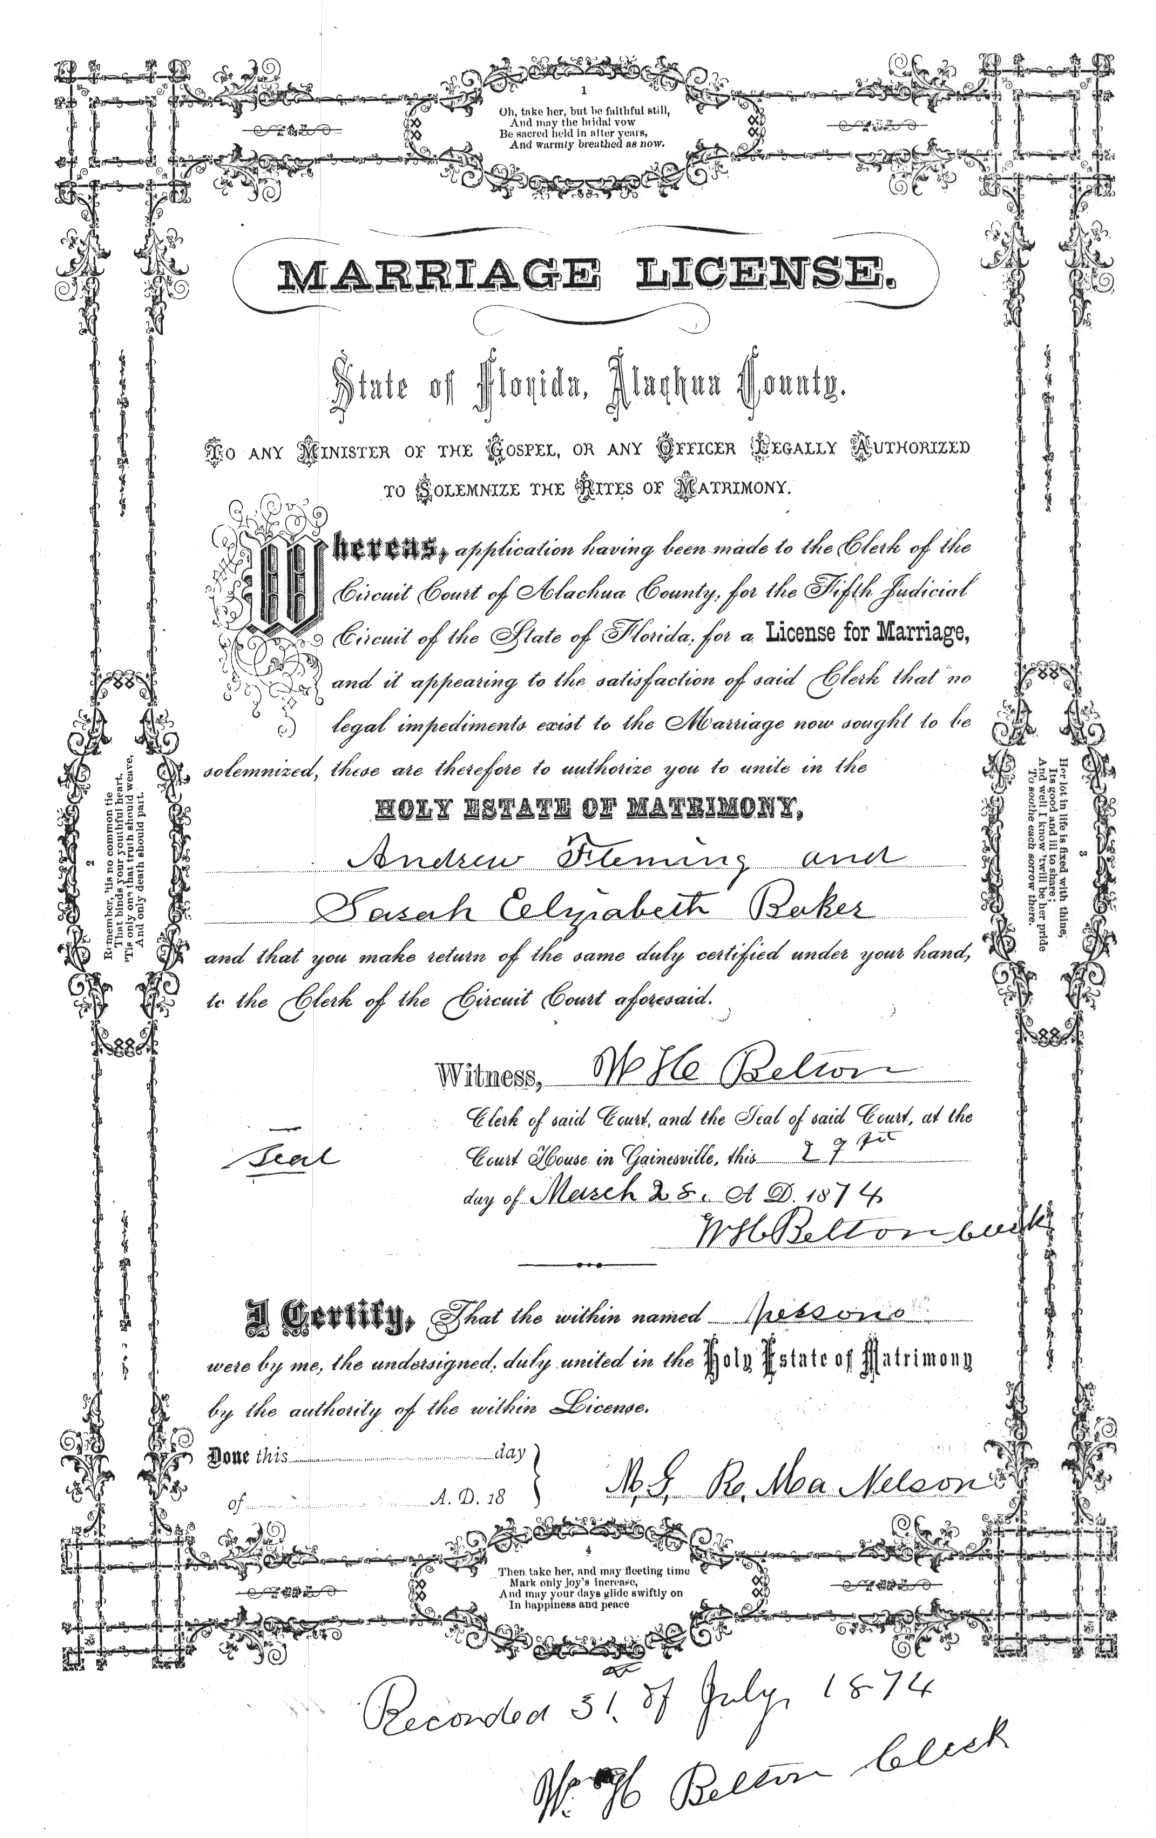 1
Oh, take her, but be faithful still,
And may the bridal vow
Be sacred held in after years,
And warmly breathed as now.
MARRIAGE LICENSE.
State of Florida, Alachua County.
TO ANY MINISTER OF THE GOSPEL, OR ANY OFFICER LEGALLY AUTHORIZED
TO SOLEMNIZE THE RITES OF MATRIMONY.
Whereas, application having been made to the Clerk of the
Circuit Court of Alachua County, for the Fifth Judicial
Circuit of the State of Florida, for a License for Marriage,
and it appearing to the satisfaction of said Clerk that no
legal impediments exist to the Marriage now sought to be
solemnized, these are therefore to authorize you to unite in the
HOLY ESTATE OF MATRIMONY,
Andrew Fleming and
Sarah Elizabeth Baker
and that you make return of the same duly certified under your hand,
to the Clerk of the Circuit Court aforesaid.
Witness, W H Belton
Clerk of said Court, and the Seal of said Court, at the
Seal
Court House in Gainesville, this 27
day of March 28. A D. 1874
W H Belton Clerk
I Certify, That the within named persons
were by me, the undersigned, duly united in the Holy Estate of Matrimony
by the authority of the within License.
Done this day
of A. D. 18
M. G. R. Ma Nelson
2
Remember, 'tis no common tie
That binds your youthful heart,
'Tis only one that truth should weave,
And only death should part.
3
Her lot in life is fixed with thine,
Its good and ill to share;
And well I know 'twill be her pride
To soothe each sorrow there.
4
Then take her, and may fleeting time
Mark only joy's increase,
And may your days glide swiftly on
In happiness and peace
Recorded 31. of July, 1874
Wm H Belton Clerk